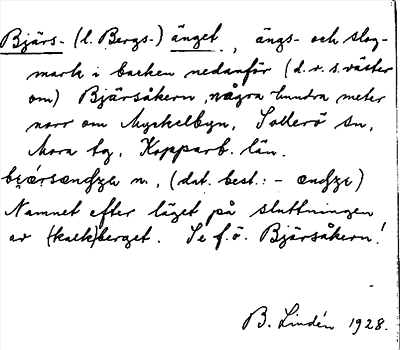 Bjärs- (l. Bergs-) änget, ängs- och slog-
mark i backen nedanför (d.v.s. väster
om) Bjärsåkern, några hundra meter
norr om Myckelbyn, Sollerö sn,
Mora tg, Kopparb. län.
n., (dat. best.: -
Namnet efter läget på sluttningen
av (kalk)berget. Se f.ö. Bjärsåkern!
B. Lindén 1928.